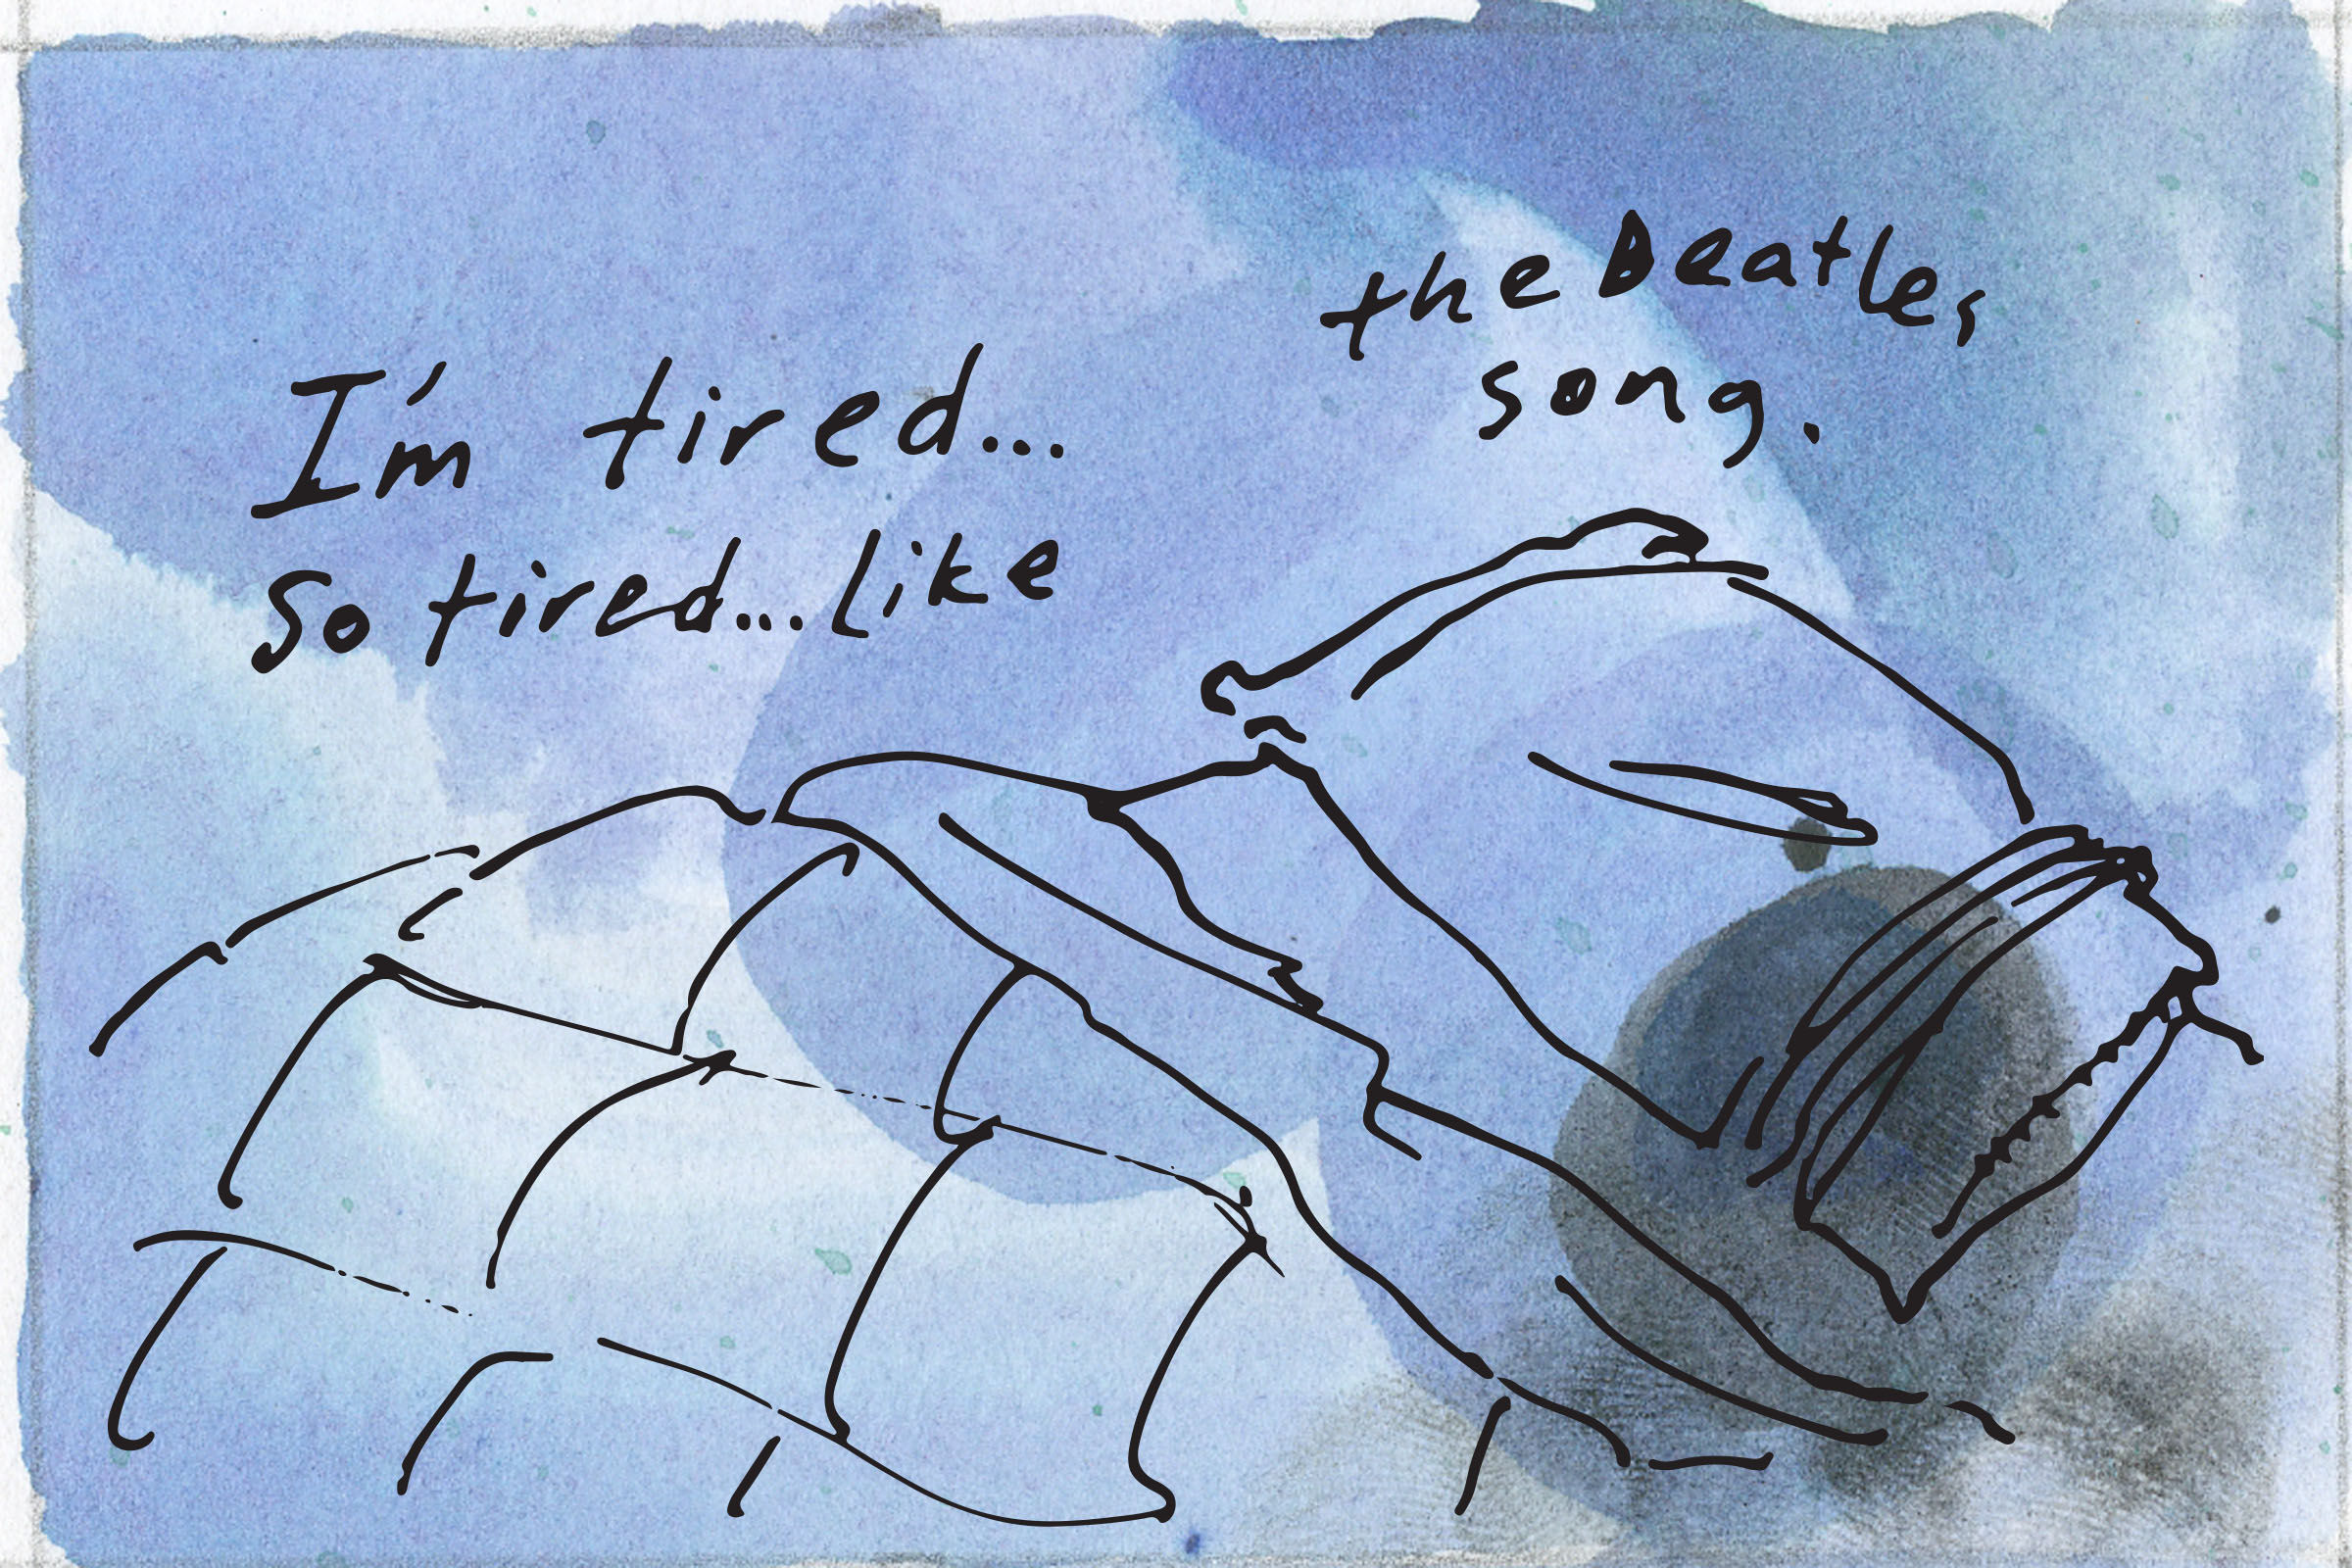 I'm tired...
so tired...like
the Beatles
song.